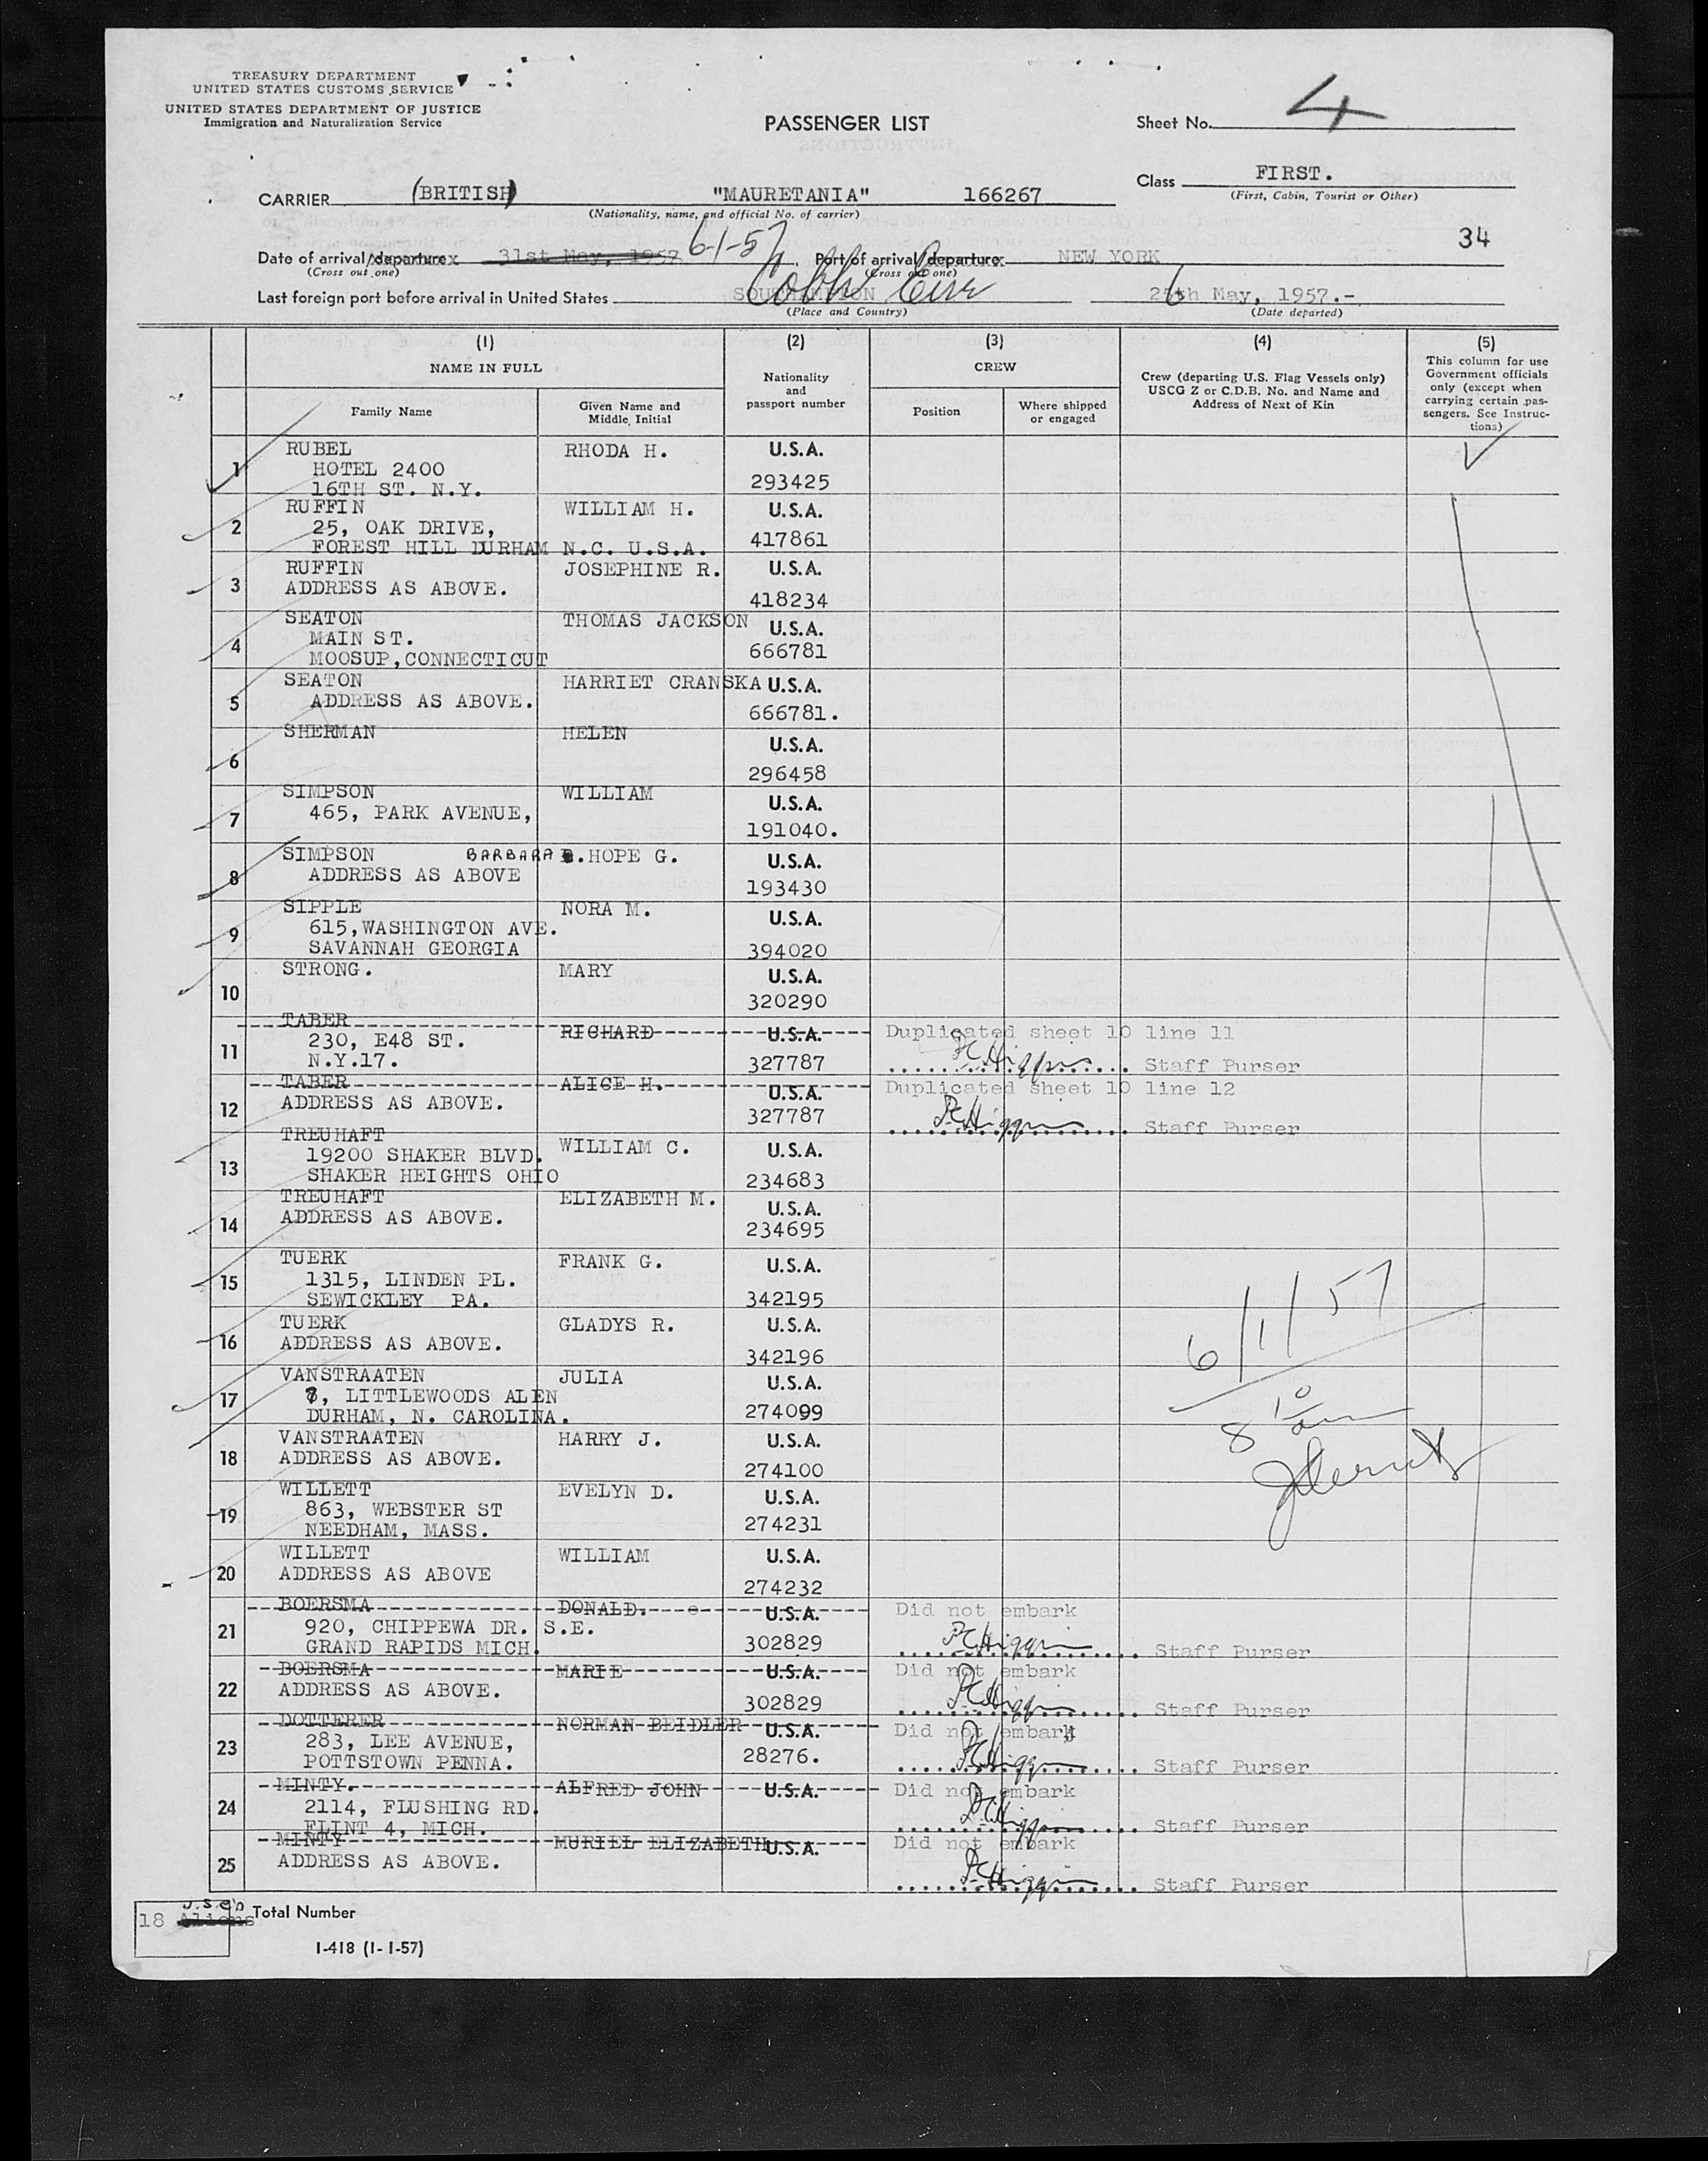 TREASURY DEPARTMENT
UNITED STATES CUSTOMS SERVICE
UNITED STATES DEPARTMENT OF JUSTICE
Immigration and Naturalization Service
PASSENGER LIST
Sheet No. 4
Class FIRST.
(First, Cabin, Tourist or Other)
CARRIER (BRITISH) "MAURETANIA" 166267
(Nationality, name, and official No. of carrier)
34
Date of arrival/departure 31st May, 1957 6-1-57, Port of arrival/departure NEW YORK
(Cross out one) (Cross out one)
Last foreign port before arrival in United States SOUTHAMPTON Cobh Eire 26th May, 1957.-
(Place and Country) (Date departed)
(1) (2) (3) (4) (5)
NAME IN FULL
Nationality and passport number
CREW
Crew (departing U.S. Flag Vessels only) USCG Z or C.D.B. No. and Name and Address of Next of Kin
This column for use Government officials only (except when carrying certain pas-sengers. See Instruc-tions)
Family Name Given Name and Middle Initial Position Where shipped or engaged
1 RUBEL RHODA H. U.S.A.
HOTEL 2400 293425
16TH ST. N.Y.
2 RUFFIN WILLIAM H. U.S.A.
25, OAK DRIVE, 417861
FOREST HILL DURHAM N.C. U.S.A.
3 RUFFIN JOSEPHINE R. U.S.A.
ADDRESS AS ABOVE. 418234
4 SEATON THOMAS JACKSON U.S.A.
MAIN ST. 666781
MOOSUP,CONNECTICUT
5 SEATON HARRIET CRANSKA U.S.A.
ADDRESS AS ABOVE. 666781.
6 SHERMAN HELEN U.S.A.
296458
7 SIMPSON WILLIAM U.S.A.
465, PARK AVENUE, 191040.
8 SIMPSON BARBARA .HOPE G. U.S.A.
ADDRESS AS ABOVE 193430
9 SIPPLE NORA M. U.S.A.
615,WASHINGTON AVE.
SAVANNAH GEORGIA 394020
10 STRONG. MARY U.S.A.
320290
11 TABER RICHARD U.S.A. Duplicated sheet 10 line 11
230, E48 ST.
N.Y.17. 327787 Staff Purser
12 TABER ALICE H. U.S.A. Duplicated sheet 10 line 12
ADDRESS AS ABOVE. 327787 Staff Purser
13 TREUHAFT WILLIAM C. U.S.A.
19200 SHAKER BLVD.
SHAKER HEIGHTS OHIO 234683
14 TREUHAFT ELIZABETH M. U.S.A.
ADDRESS AS ABOVE. 234695
15 TUERK FRANK G. U.S.A.
1315, LINDEN PL.
SEWICKLEY PA. 342195
16 TUERK GLADYS R. U.S.A.
ADDRESS AS ABOVE. 342196
6/1/57
17 VANSTRAATEN JULIA U.S.A.
, LITTLEWOODS ALEN
DURHAM, N. CAROLINA. 274099
18 VANSTRAATEN HARRY J. U.S.A.
ADDRESS AS ABOVE. 274100
19 WILLETT EVELYN D. U.S.A.
863, WEBSTER ST
NEEDHAM, MASS. 274231
20 WILLETT WILLIAM U.S.A.
ADDRESS AS ABOVE 274232
21 BOERSMA DONALD. U.S.A. Did not embark
920, CHIPPEWA DR. S.E.
GRAND RAPIDS MICH. 302829 Staff Purser
22 BOERSMA MARIE U.S.A. Did not embark
ADDRESS AS ABOVE. 302829 Staff Purser
23 DOTTERER NORMAN BEIDLER U.S.A. Did not embark
283, LEE AVENUE,
POTTSTOWN PENNA. 28276. Staff Purser
24 MINTY. ALFRED JOHN U.S.A. Did not embark
2114, FLUSHING RD.
FLINT 4, MICH. Staff Purser
25 MINTY MURIEL ELIZABETH U.S.A. Did not embark
ADDRESS AS ABOVE. Staff Purser
18 Aliens U.S.C's Total Number
I-418 (1-1-57)